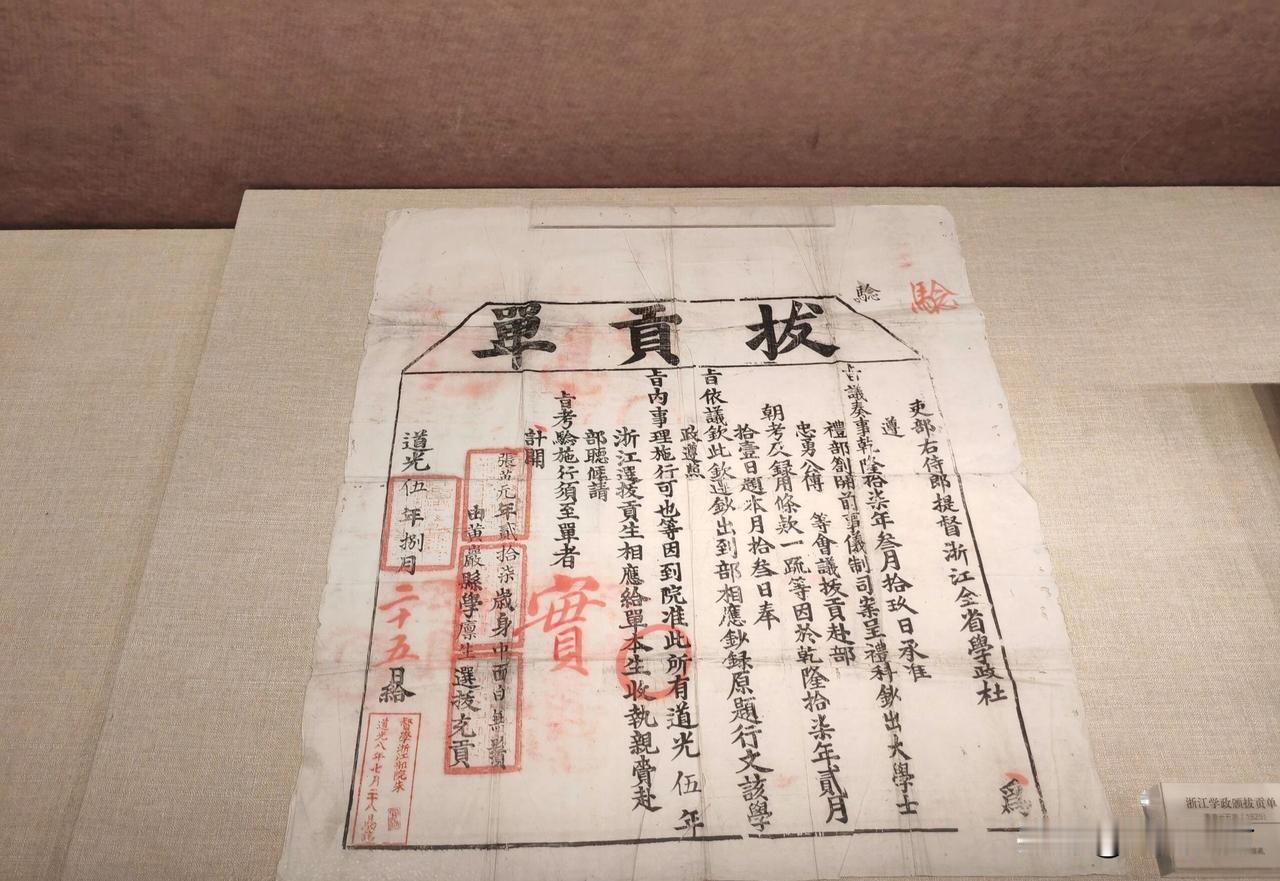 驗
驗
拔貢單
吏部右侍郎提督浙江全省學政杜
爲
遵
旨議奏事乾隆拾柒年叁月拾玖日承准
禮部劄開前事儀制司案呈禮科鈔出大學士
忠勇公傅 等會議拔貢赴部
朝考及録用條款一疏等因於乾隆拾柒年貳月
拾壹日題本月拾叁日奉
旨依議欽此欽遵鈔出到部相應鈔録原題行文該學
政遵照
旨内事理施行可也等因到院准此所有道光伍年
浙江選拔貢生相應給單本生收執親賫赴
部聽候請
旨考驗施行須至單者
計開
張 元年貳拾柒歲身中面白無鬚
由黃巖縣學廪生選拔充貢
實
道光伍年捌月二十五日給
督學浙江部院朱
道光八年七月二十八日
浙江学政颁拔贡单